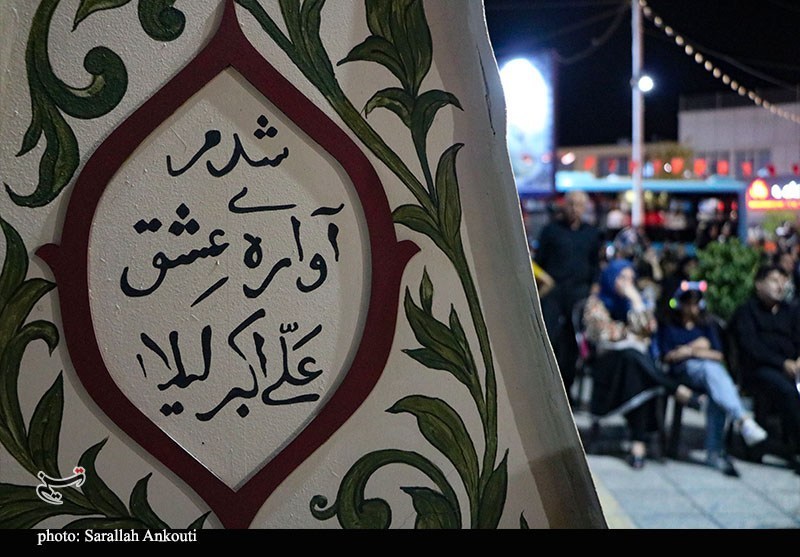 شدم
آواره‌ے عِشق
عَلّے اکبر لیلا
تسنیم
photo: Sarallah Ankouti